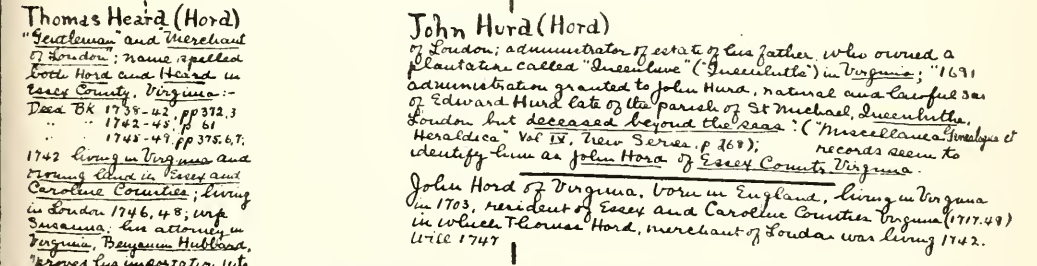 Thomas Heard (Hord)
"Gentleman" and "Merchant
of London"; name spelled
both Hord and Heard in
Essex County, Virginia:-
Deed Bk 1738-42 pp 372,3
" " 1742-45, p 61
" " 1745-49, pp 375,6,7;
1742 living in Virginia and
owning land in Essex and
Caroline Counties; living
in London 1746, 48; wife
Susanna; his attorney in
Virginia, Benjamin Hubbard,
"proves his importation into
John Hurd (Hord)
of London; administrator of estate of his father who owned a
plantation called "Queenhive" ("Queenhithe") in Virginia; "1691
administration granted to John Hurd, natural and lawful son
of Edward Hurd late of the parish of St Michael, Queenhithe,
London but deceased beyond the seas": ("Miscellanea Genealogica et
Heraldica" Vol IV, New Series, p 368); records seem to
identify him as John Hord of Essex County Virginia.
John Hord of Virginia, born in England, living in Virginia
in 1703, resident of Essex and Caroline Counties Virginia (1717-49)
in which Thomas Hord, merchant of London was living 1742.
Will 1747